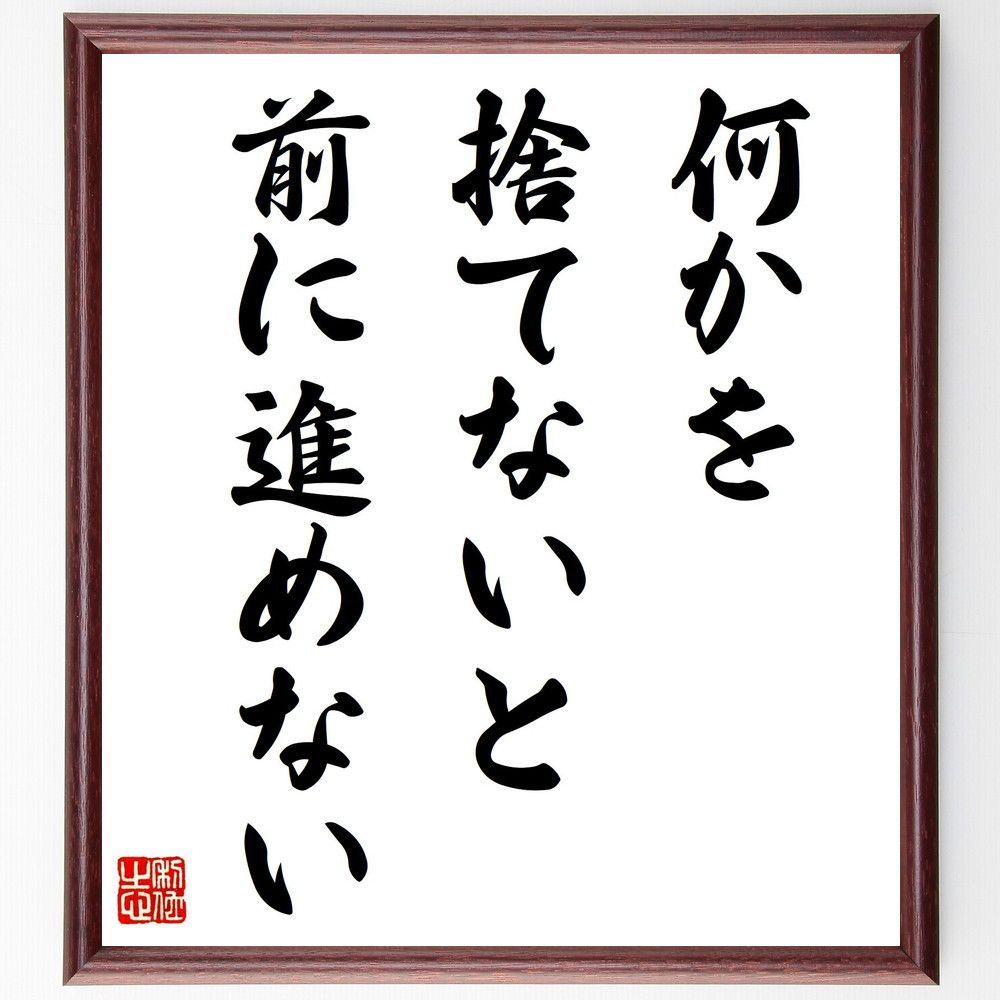 何かを
捨てないと
前に進めない